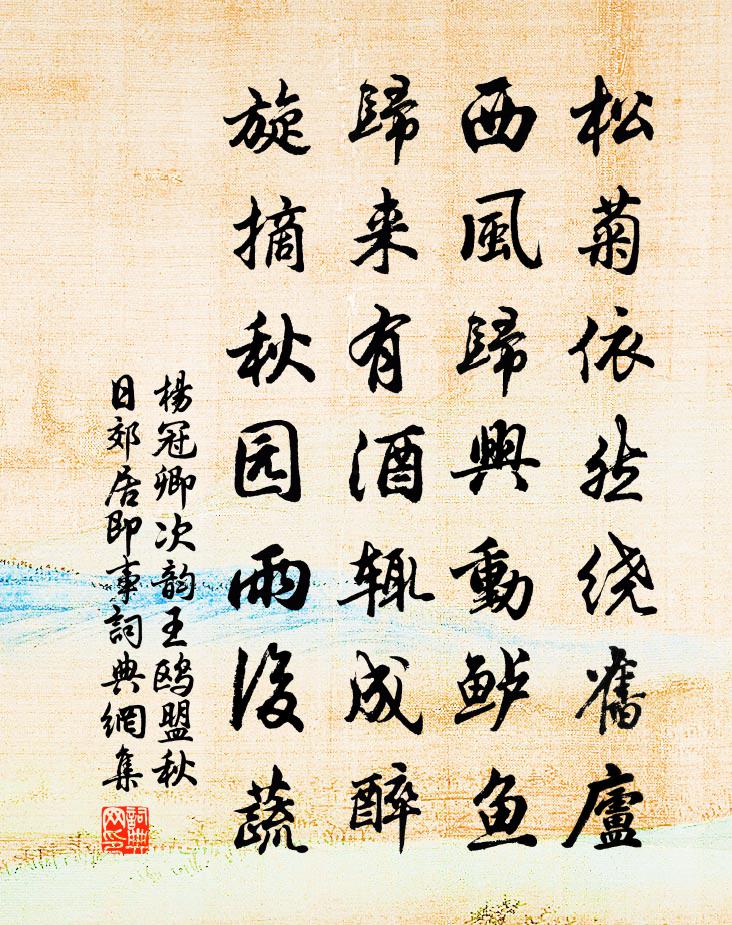 松菊依然绕舊廬
西風歸興動鲈鱼
歸来有酒辄成醉
旋摘秋园雨後蔬
楊冠卿次韵王鸥盟秋
日郊居即事詞典網集